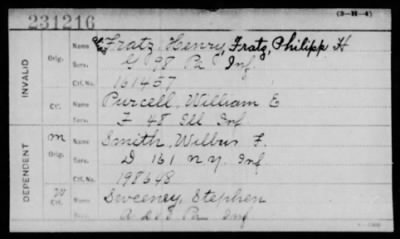 231216 (3-H-4)
INVALID
Orig.
Name Fratz, Henry, Fratz, Philipp H
Serv. G 98 Pa Inf.
Ctf. No. 161457
Ctf.
Purcell, William E
F 48 Ill Inf
DEPENDENT
m
Orig.
Name Smith, Wilbur F.
Serv. D 161 N.Y. Inf.
Ctf. No. 198648
Ctf.
Name Sweeney, Stephen
Serv. Pa Inf